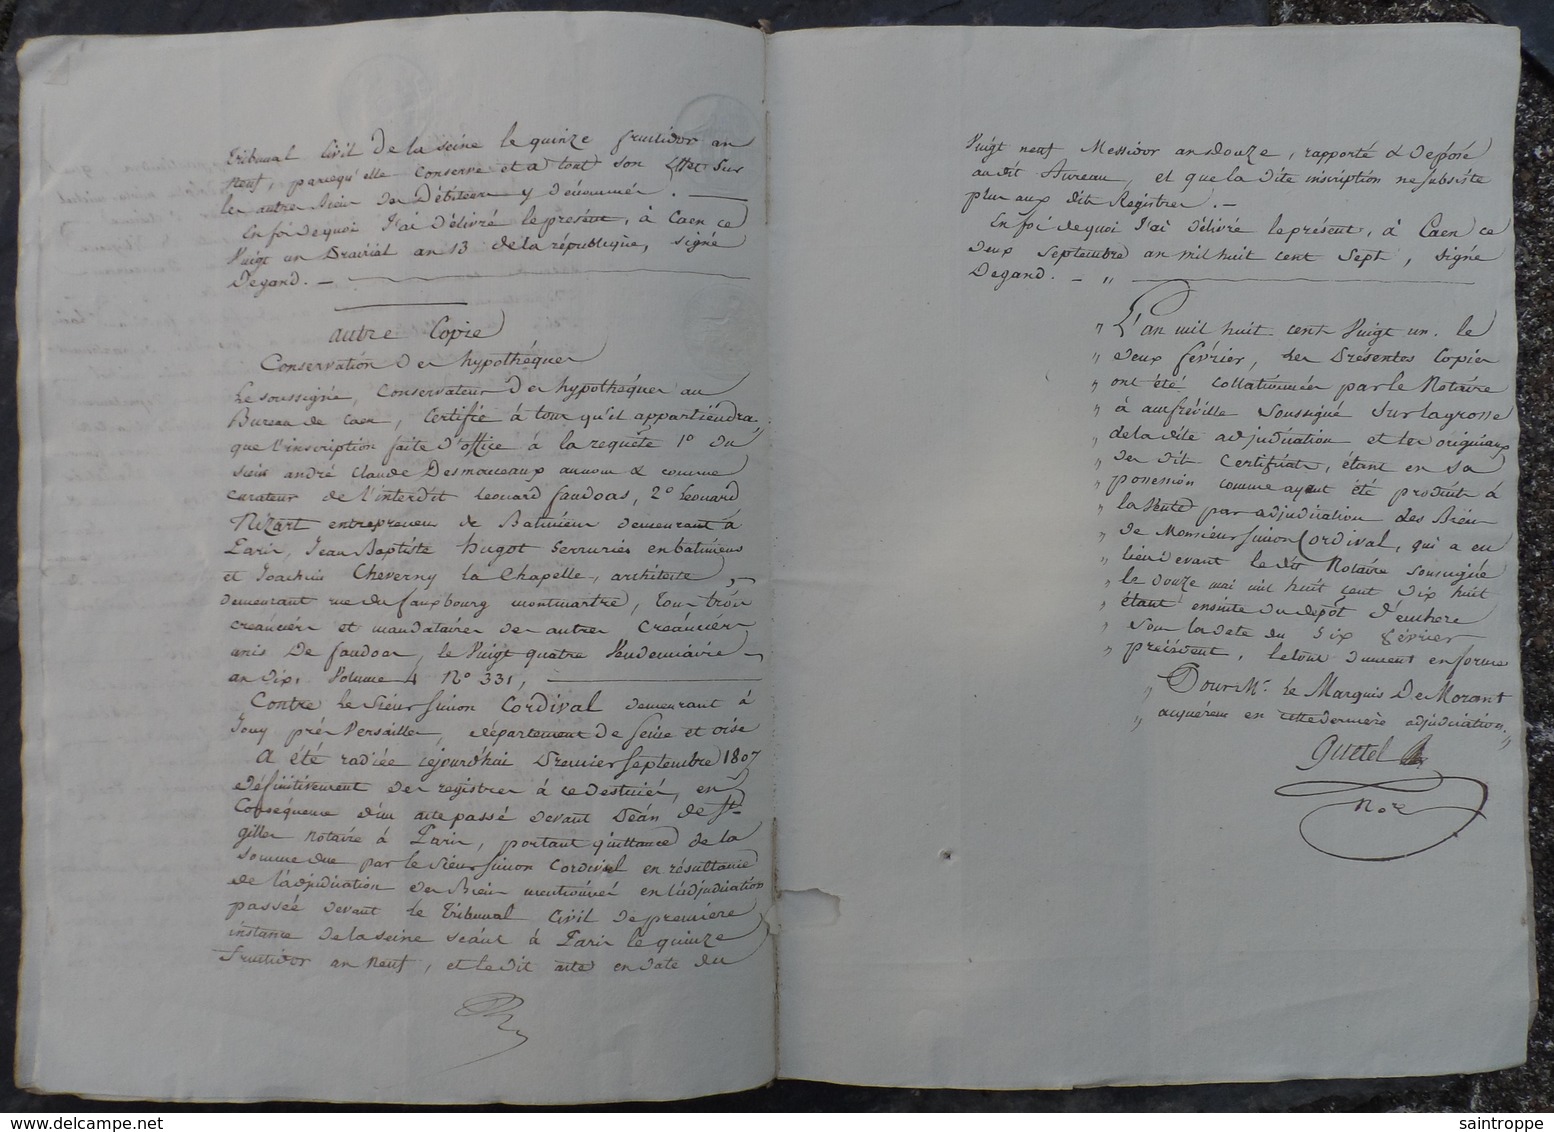 Tribunal Civil de la Seine le quinze fructidor an
neuf, parcequ'elle Conserve et a tout son Effet sur
les autres Biens des Débiteurs y dénommés. —
En foi de quoi J'ai délivré le présent, à Caen ce
Vingt un Prairial an 13 de la république, signé
Degand. —
autre Copie
Conservation des hypothéques
Le soussigné, Conservateur des hypothéques au
Bureau de Caen, Certifie à tous qu'il appartiendra,
que l'inscription faite d'office à la requête 1° du
sieur andré Claude Desmouceaux aunom & comme
curateur de l'interdit Léouard faudoas, 2° Léouard
Nizart entrepreneur de Batimens demeurant à
Paris, Jean Baptiste Hugot Serruriés en batimens
et Joachim Cheverny la Chapelle, architecte,
demeurant rue du fauxbourg montmartre, tous trois
creanciers et mandataires des autres Creanciers
unis De faudoas, le Vingt quatre Vendemiaire
an dix, Volume 4 N° 331,
Contre le Sieur Simon Cordival demeurant à
Jouy près Versailles, département de Seine et oise
A été radiée cejourd'hui Premier Septembre 1807
définitivement des registres à ce destinés, en
Conséquence d'un acte passé devant Péan de St
gilles notaire à Paris, portant quittance de la
somme due par le Sieur Simon Cordival en résultance
de l'adjudication des Biens mentionnés en l'adjudication
passée devant le Tribunal Civil de première
instance de la seine séant à Paris le quinze
fructidor an neuf, et le dit acte en date du
Vingt neuf Messidor an douze, rapporté & déposé
au dit Bureau, et que la dite inscription ne subsiste
plus aux dits Registres. —
En foi de quoi J'ai délivré le présent, à Caen ce
deux Septembre an mil huit cent Sept, signé
Degand. — "
" L'an mil huit cent Vingt un. le
" deux février, Les Présentes Copies
" ont été collationnées par le Notaire
" à amfréville soussigné sur la grosse
" de la dite adjudication et les originaux
" des dits Certificats, étant en sa
" possession comme ayant été produits à
" la Vente par adjudication des Biens
" de Monsieur Simon Cordival, qui a eu
" lieu devant le dit Notaire soussigné
" le douze mai mil huit cent dix huit
" étant ensuite du dépôt d'enchere
" sous la date du six février
" précédent, le tout dument en forme
" Pour Mr. le Marquis De Morant
" acquéreur en cette dernière adjudication. "
Guetel
Nore